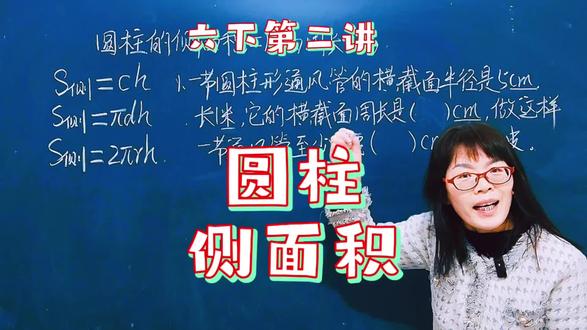 六下第二讲
圆柱的侧
S侧=ch 1.一节圆柱形通风管的横截面半径是5cm,
S侧=πdh 长1米,它的横截面周长是( )cm,做这样
S侧=2πrh 一节 管至少 ( )c 皮。
圆柱
侧面积